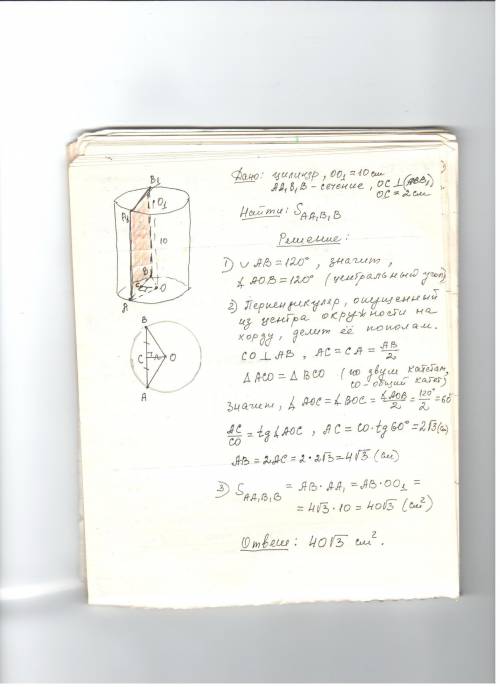 Дано: цилиндр, OO₁ = 10 см
AA₁B₁B - сечение, OC ⊥ (ABB₁)
OC = 2 см
Найти: S AA₁B₁B
Решение:
1) ∪ AB = 120°, значит,
∡ AOB = 120° (центральный угол)
2) Перпендикуляр, опущенный
из центра окружности на
хорду, делит её пополам.
CO ⊥ AB, AC = CA = AB/2
△ ACO = △ BCO (по двум катетам,
CO - общий катет)
Значит, ∡ AOC = ∡ BOC = ∡AOB/2 = 120°/2 = 60
AC/CO = tg ∡ AOC, AC = CO · tg 60° = 2√3 (см)
AB = 2AC = 2 · 2√3 = 4√3 (см)
3) S AA₁B₁B = AB · AA₁ = AB · OO₁ =
= 4√3 · 10 = 40√3 (см²)
Ответ: 40√3 см².
B₁
O₁
A₁
10
B
O
A
B
C
O
A